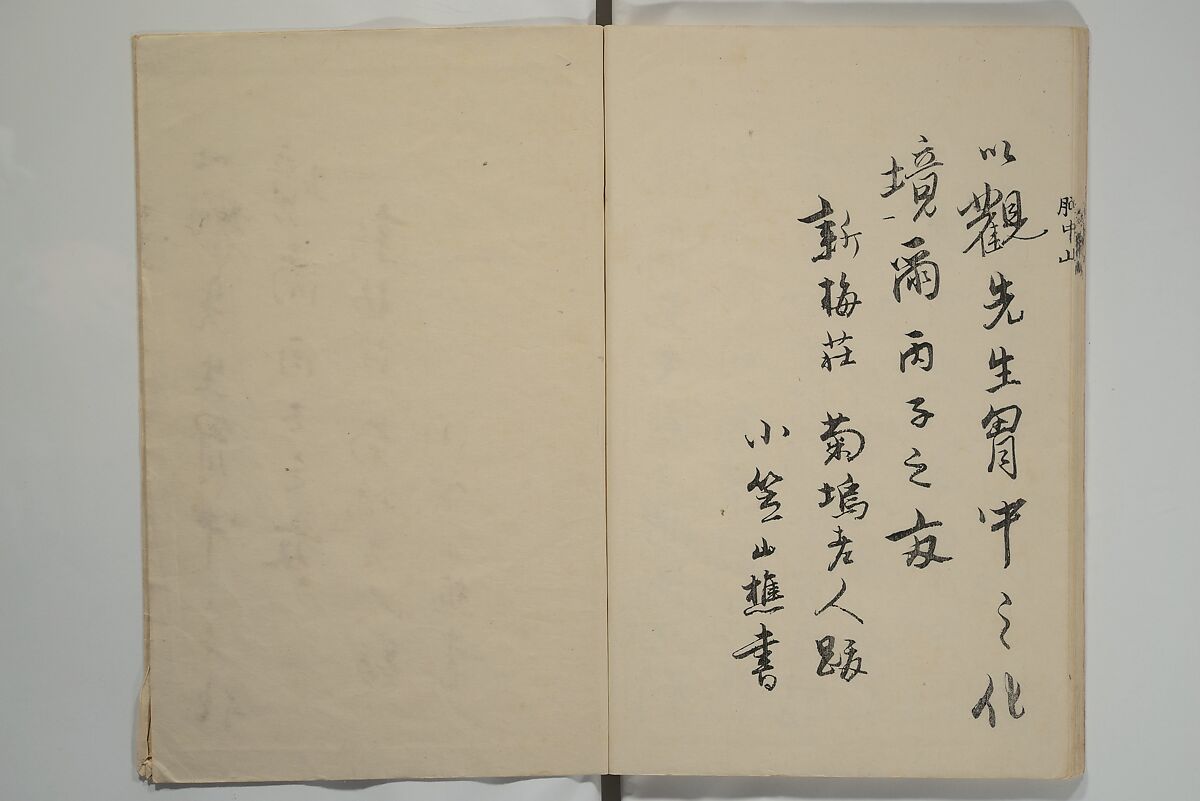 胸中山
以觀先生胷中之化
境爾丙子之夏
新梅莊 菊塢老人跋
小笠山樵書